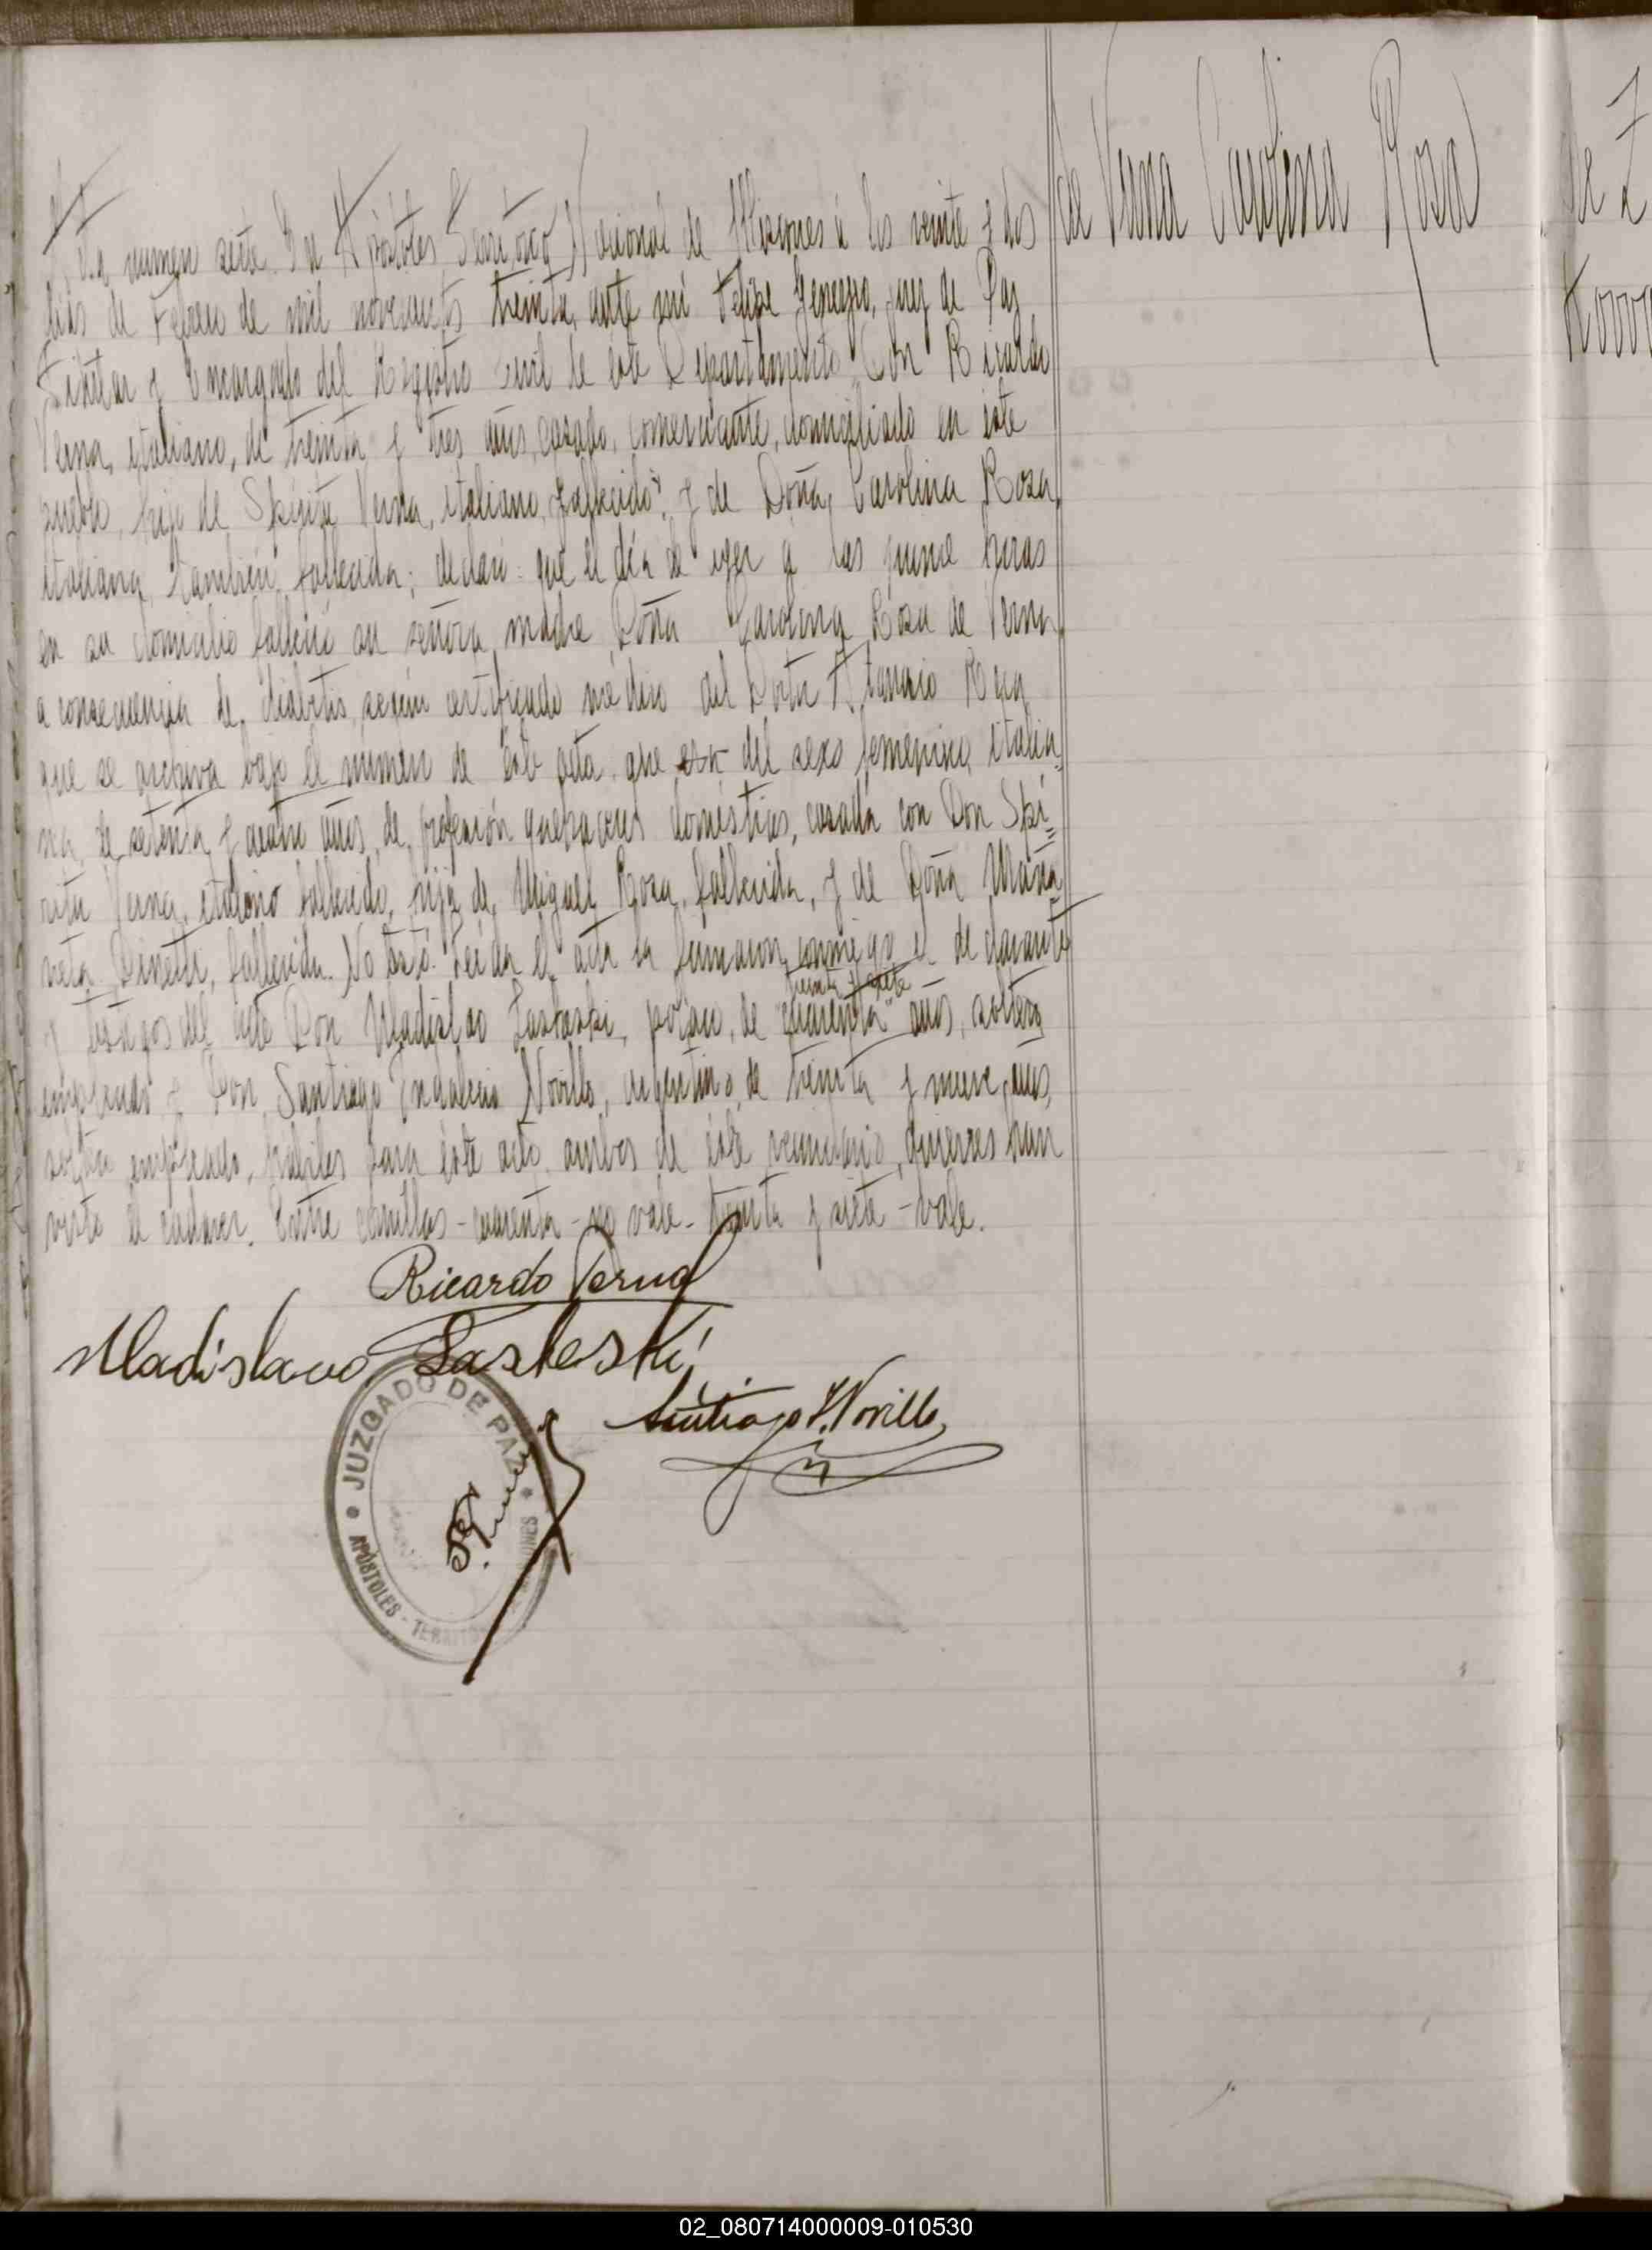 de Verna Carolina Rosa
Acta número siete. En Apóstoles Territorio Nacional de Misiones a los veinte y dos
días de Febrero de mil novecientos treinta, ante mi Felipe, juez de Paz
Titular y Encargado del Registro Civil de éste Departamento Don Ricardo
Verna, italiano, de treinta y tres años, casado, comerciante, domiciliado en éste
pueblo, hijo de Verna, italiano, fallecido, y de Doña Carolina Rosa,
italiana, también fallecida; declaró: que el día de ayer a las quince horas
en su domicilio falleció su señora madre Doña Carolina Rosa de Verna
a consecuencia de diabetis según certificado médico del Doctor
que se archiva bajo el número de ésta acta, que era del sexo femenino, italia„
na, de setenta y cuatro años, de profesión quehaceres domésticos, casada con Don Spi=
ritu Verna, italiano fallecido, hija de Miguel Rosa, fallecida, y de Doña
fallecida. No testó. Leída el acta la firmaron conmigo el declarante
treinta y siete
y testigos del acto Don Uladislao polaco, de "cuarenta" años, soltero
empleado y Don Santiago Indalecio Novillo, argentino, de treinta y nueve años,
soltero empleado, hábiles para éste acto, ambos de éste vecindario, quienes han
visto el cadaver. Entre comillas - cuarenta - no vale - treinta y siete - vale.
Ricardo Verna
Uladislavo
Santiago I. Novillo
JUZGADO DE PAZ
APÓSTOLES -
de